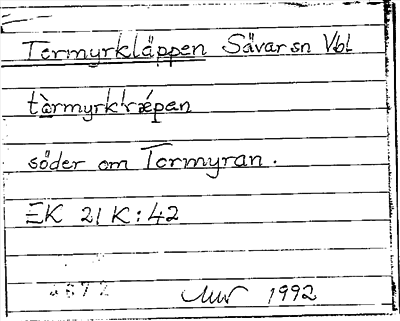 Tormyrkläppen Sävar sn Vbl
tòrmyrkl'ræ̀pan
söder om Tormyran.
EK 21 K:42
1992